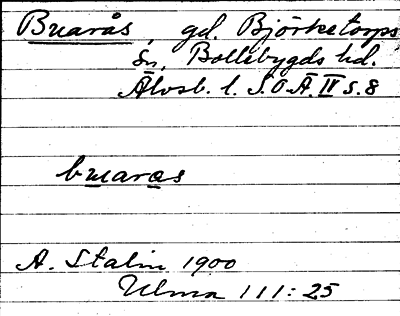 Buarås, gd. Björketorps
sn, Bollebygds hd.
Älvsb. l. S.O.Ä. II s. 8
buaras
A. Stalin 1900
Ulma 111:25